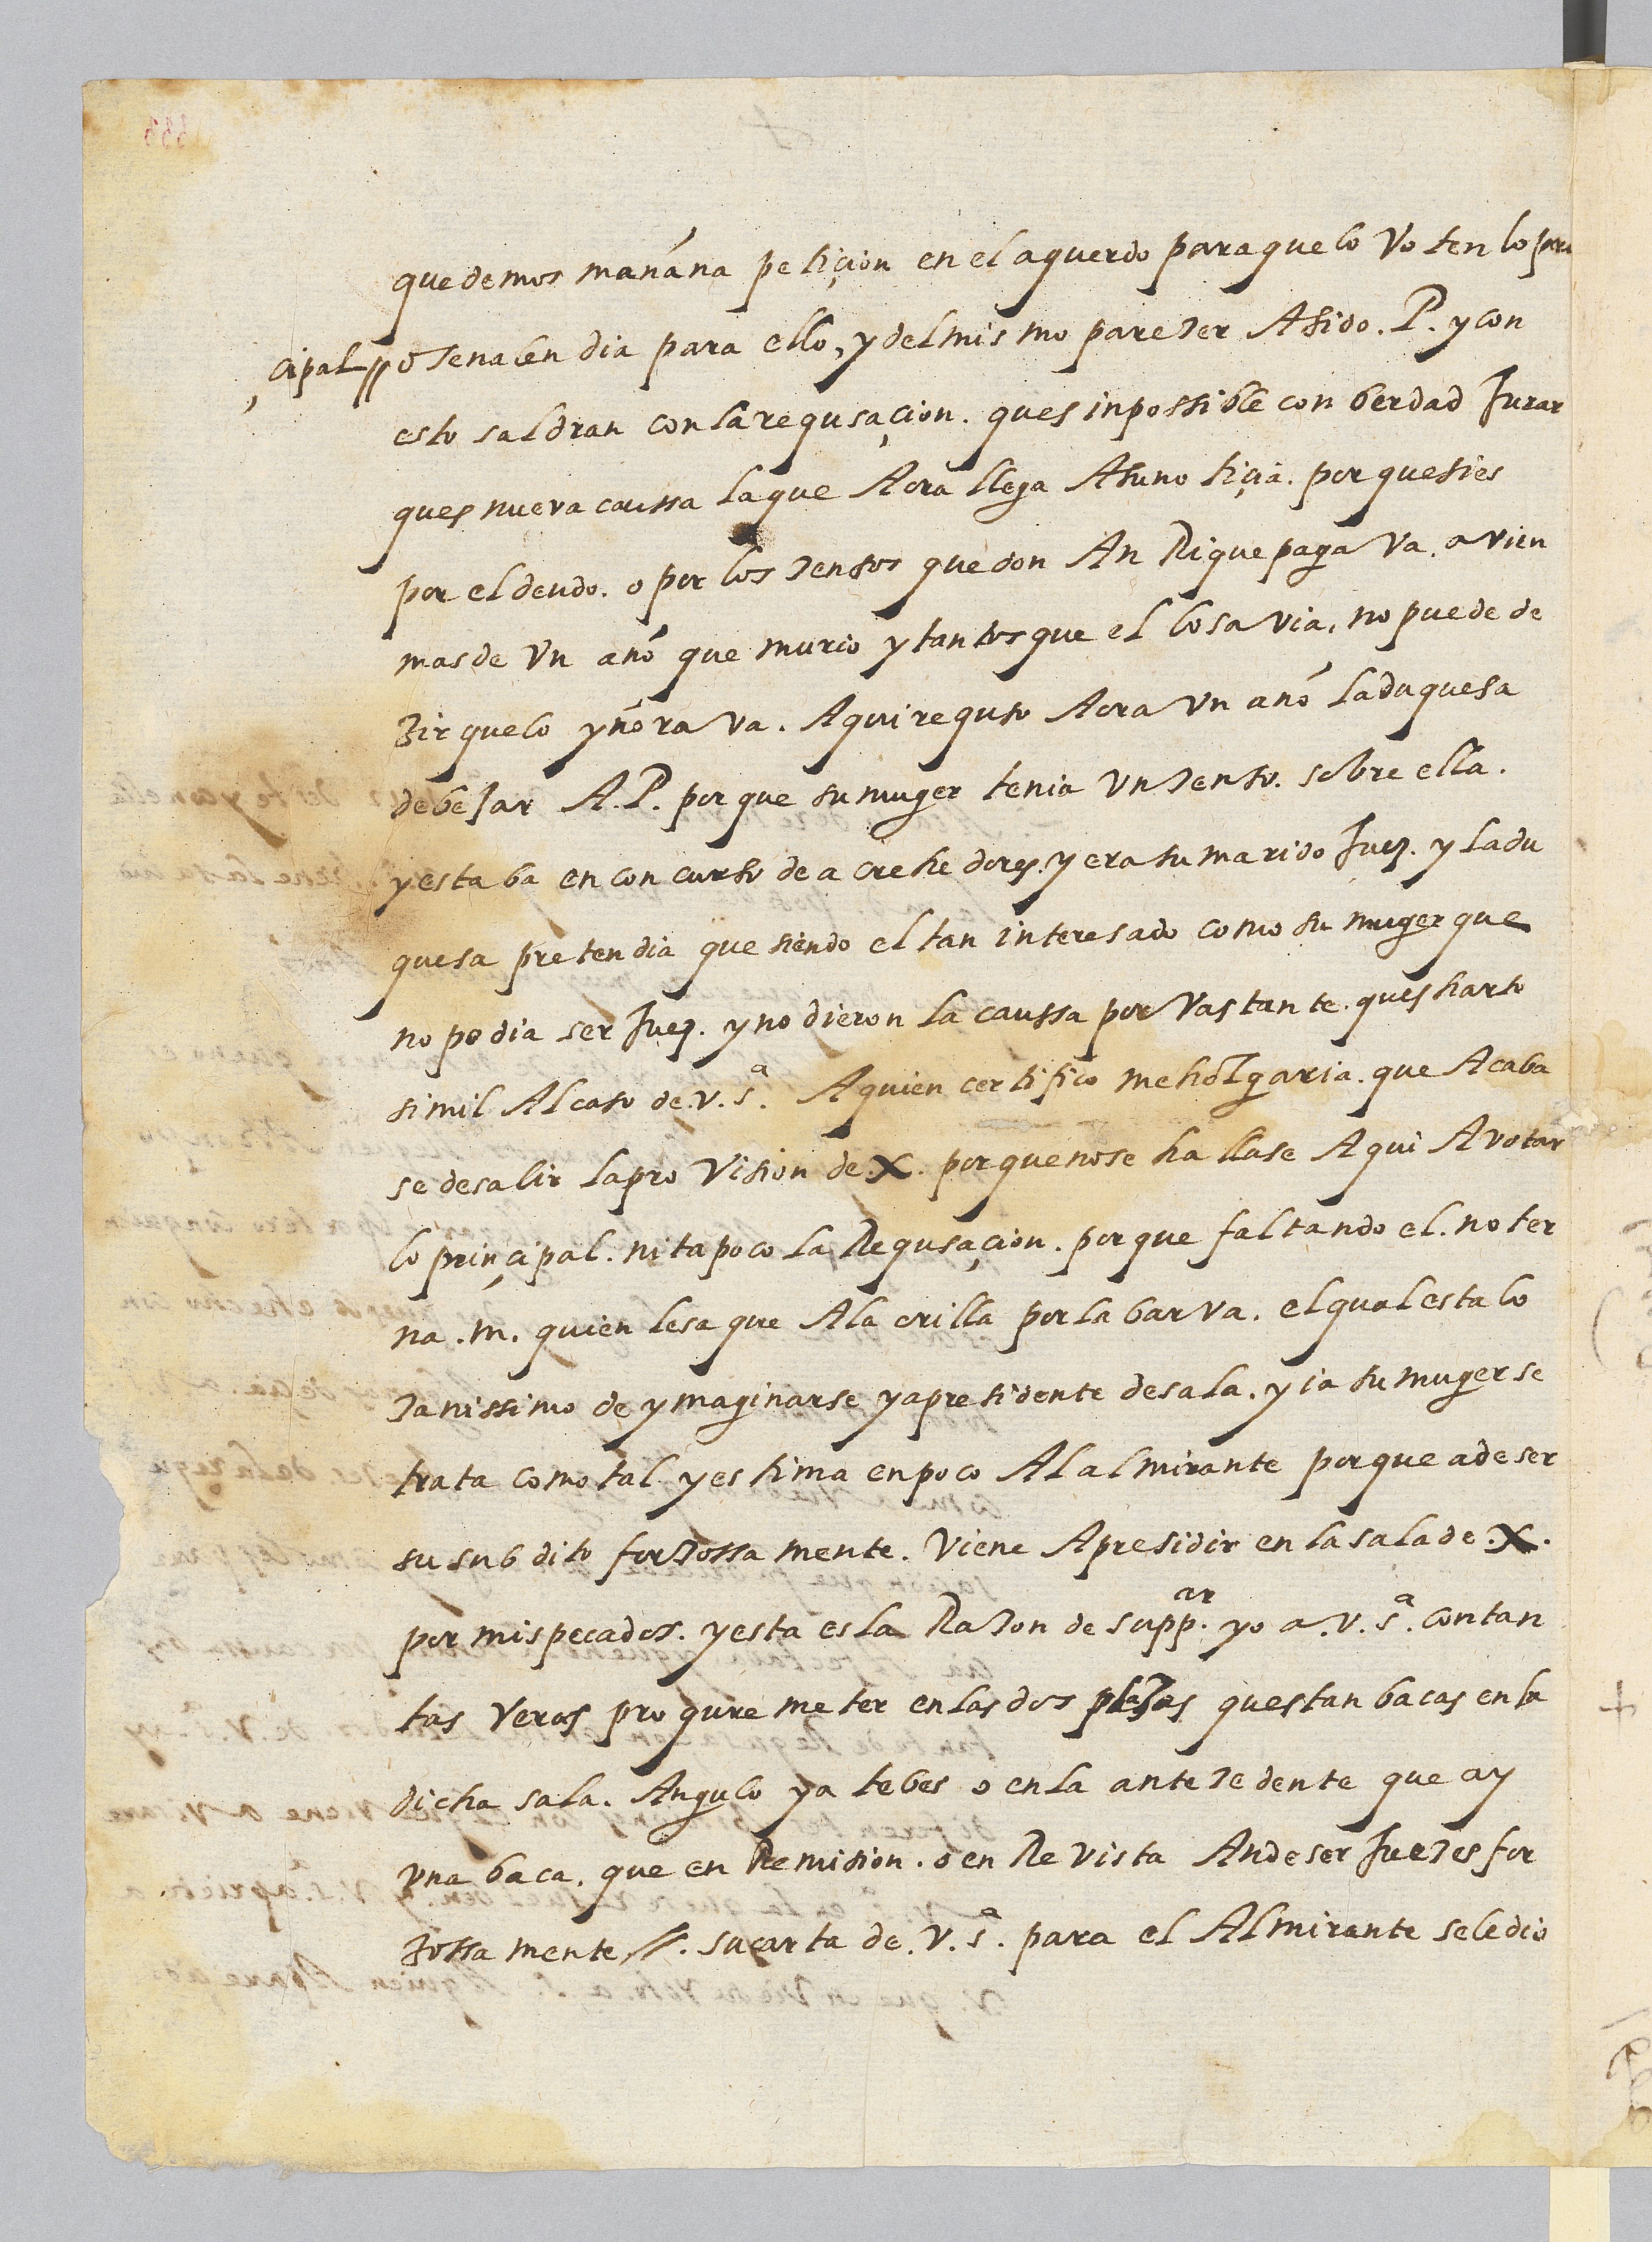 que demos mañana petiçion en el aquerdo para que lo voten lo prin
çipal // o señalen dia para ello, y del mismo pareçer A sido. P. y con
esto saldran con la requsaçion. ques inpossible con berdad Jurar
ques nueva caussa la que Aora llega A su notiçia. porque si es
por el deudo. o por los çensos que don AnRique pagava. avien
mas de Vn año que murio y tantos que el lo savia, no puede de
zir que lo ynorava. Aqui requso Aora Vn año la duquesa
de beJar A. P. porque su muger tenia Vn çenso. sobre ella.
y estaba en concurso de acrehedores. y era su marido Juez. y la du
quesa pretendia que siendo el tan interesado como su muger que
no podia ser Juez. y no dieron la caussa por Vastante. ques harto
simil Al caso de. v. sª. A quien certifico me holgaria. que Acaba
se de salir la proVision de. X. porque no se hallase Aqui A votar
lo prinçipal. ni tapoco la Requsaçion. porque faltando el. no ter
na. m. quien le saque A la orilla por la barva. el qual esta lo
çanissimo de ymaginarse ya presidente de sala. y ia su muger se
trata como tal. y estima en poco Al almirante porque a de ser
su subdito forçossamente. Viene A presidir en la sala de. X.
por mis pecados. y esta es la Raçon de suppar. yo a. v. sª. con tan
tas Veras proqure meter en las dos plaças questan bacas en la
dicha sala. Angulo ya tebes o en la anteçedente que ay
vna baca. que en Remision. o en ReVista An de ser Jueçes for
zossamente //. su carta de. v. sª. para el Almirante se le dio